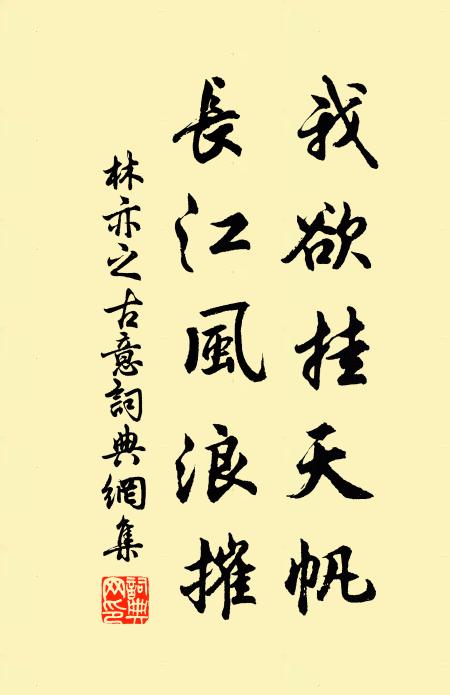 我欲挂天帆
長江風浪摧
林亦之古意詞典網集
詞典網印